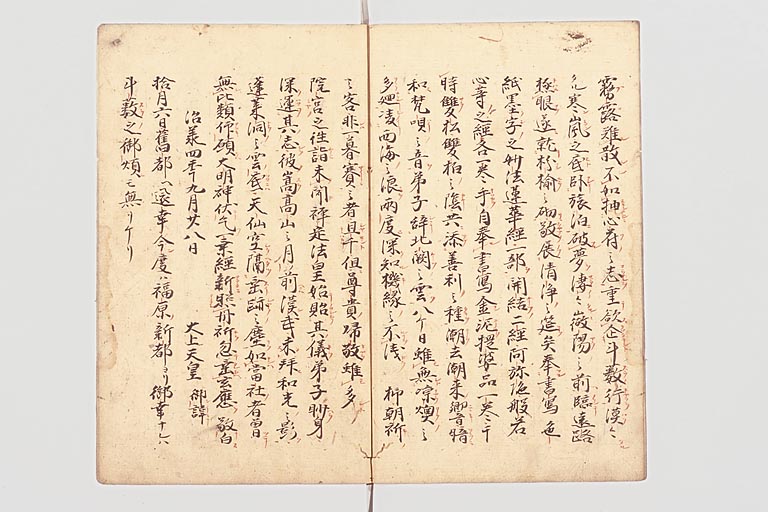 霧露雖散不如抽心府之志重欲企斗藪行漠々
タル寒嵐之底臥旅泊破夢凄々微陽之前臨遠路
極眼遂就枌楡之砌敬展清浄之莚矣奉書写色
紙墨字之妙法蓮華経一部開結二経阿弥陀般若
心等之経各一巻手自奉書写金泥提婆品一巻于
時双松双栢之蔭共添善利之種潮去潮来響暗
和梵唄之音弟子辞北闕之雲八ケ日雖無涼燠之
多廻凌西海之浪両度深知機縁之不浅 抑朝祈
之客非一暮賽之者且千但尊貴帰敬雖多
院宮之往詣未聞禅定法皇始貽其儀弟子眇身
深運其志彼嵩高山之月前漢武未拝和光之影
蓬莱洞之雲底天仙空隔垂跡之塵如当社者曽
無比類仰願大明神伏乞一乗経新照丹祈忽垂玄応敬白
治承四年九月廿八日
太上天皇 御諱
拾月六日旧都ヘ還幸今度ハ福原新都ヨリ御幸ナレハ
斗藪之御煩ハ無リケリ